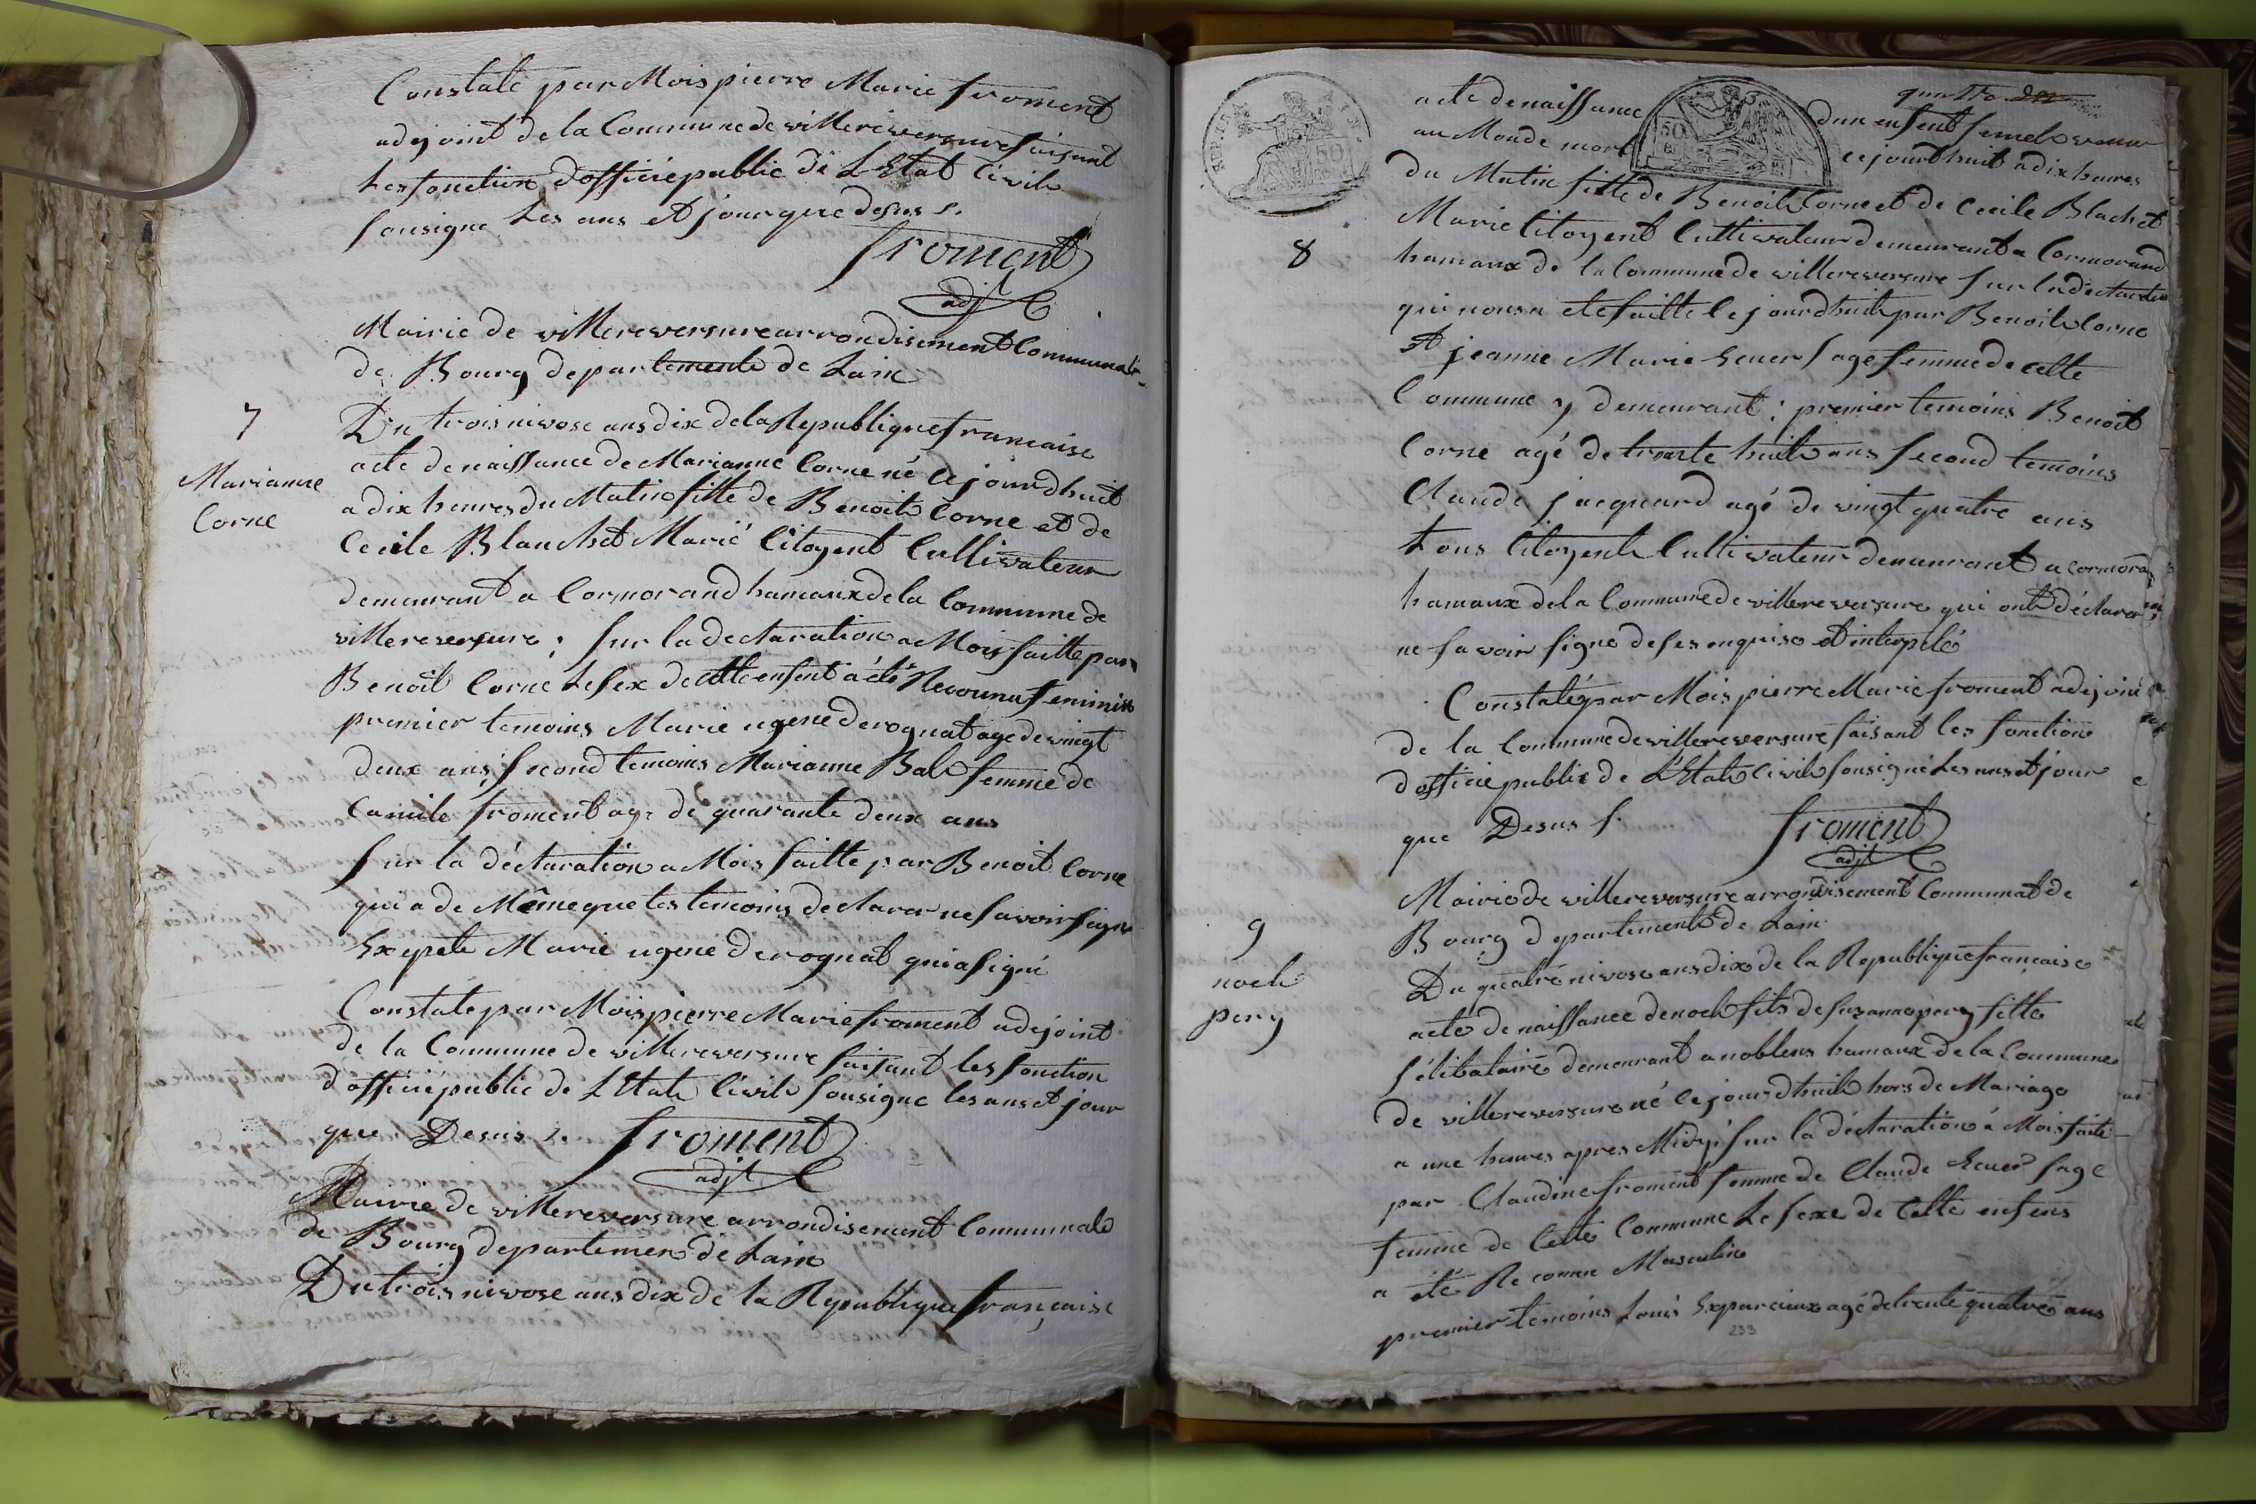 Constaté par Mois pierre Marie froment
adejoint de la Commune de villereversure faisant
Les fonction d'officié public de L'Etat Civile
Sousigne Les ans et jour que desus s.
froment
adjt
Mairie de villereversure arrondisement Communale
de Bourg departemente de Lain
7
Marianne
Corne
Du trois nivose ans dix de la Republique francaise
acte de naissance de Marianne Corne né cejourdhuit
a dix heures du Matin fille de Benoit Corne et de
Cecile Blanchet Marié Citoyent Cultivateur
demeurant a Cormorand hamaux de la Commune de
villereversure ; sur la déctaration a Mois faitte par
Benoit Corne Le sex de cette enfent a été Reconnu feminin
premier temoins Marie ugene derognat age de vingt
deux ans ; second temoins Marianne Bal femme de
Camile froment age de quarante deux ans
sur la déctaration a Mois faitte par Benoit Corne
qui a de Même que les temoins déclarer ne savoir signe
Exepete Marie ugene derognat qui a signé
Constate par Mois pierre Marie froment adejoint
de la Commune de villereversure faisant les fonction
d'officié public de L'Etate Civile Sousigne les ans et jour
que Desus s. froment
adjt
Mairie de villereversure arrondisement Communale
de Bourg departemen de Lain
Du trois nivose ans dix de la Republique française
quatre
acte de naissance dun enfent femele venu
au Monde mort cejourdhuit a dix heures
du Matin fille de Benoit Corne et de Cecile Blachet
8
Marie Citoyent Cultivateur demeurant a Cormorand
hamaux de la Commune de villereversure sur la déctaration
qui nous a ete faitte cejourdhuit par Benoit Corne
et jeanne Marie sage femme de cette
Commune y demeurant ; premier temoins Benoit
Corne agé de trante huit ans second temoins
Claude jacquard agé de vingt quatre ans
tous Citoyent Cultivateur demeurant a cormoran
hamaux de la Commune de villereversure qui ont déclarer
ne savoir signe de ses enquise et interpelé
Constaté par Mois pierre Marie froment adejoint
de la Commune de villereversure faisant les fonction
d'officié public de L'Etate Civile sousigné Les ans et jour
que Desus s. froment
adjt
Mairie de villereversure arrondisement Communal de
Bourg departemente de Lain
9
noel
pery
Du quatre nivose ans dix de la Republique francaise
acte de naissance de noel fils de susanne pery fille
sélibataire demeurant a noblens hamaux de la Commune
de villereversure né cejourdhuit hors de Mariage
a une heures apres Midy ; sur la déctaration à Mois faite
par Claudine froment femme de Claude sage
femme de Cette Commune Le sexe de Cette enfens
a été Reconnu Masculin
premier temoins Louis agé de trente quatre ans
233